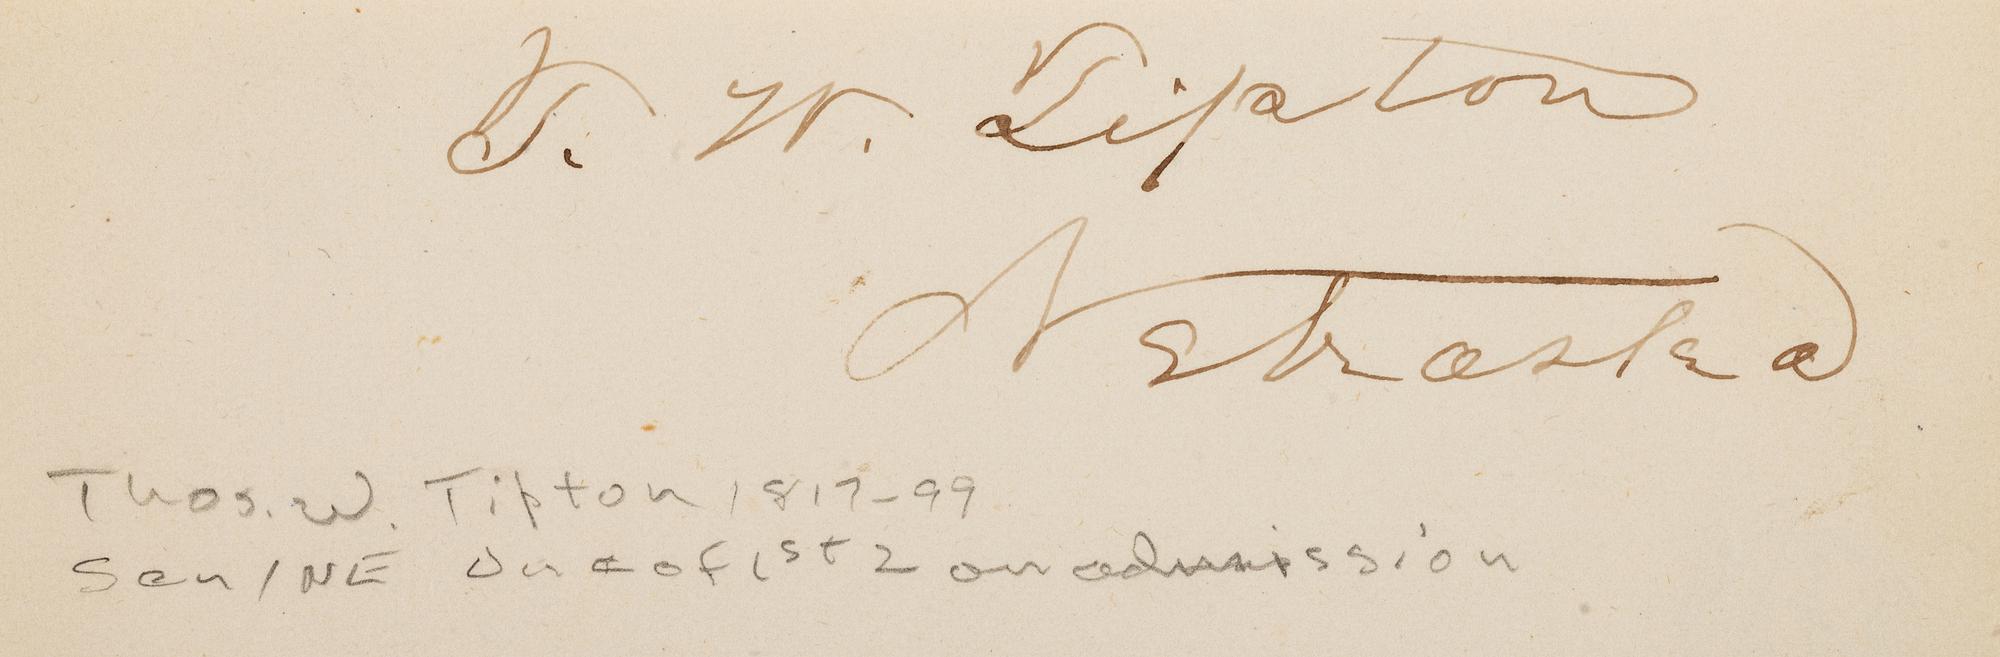 T. W. Tipton
Nebraska
Thos. W. Tipton 1817-99
Sen/NE One of 1st 2 on admission